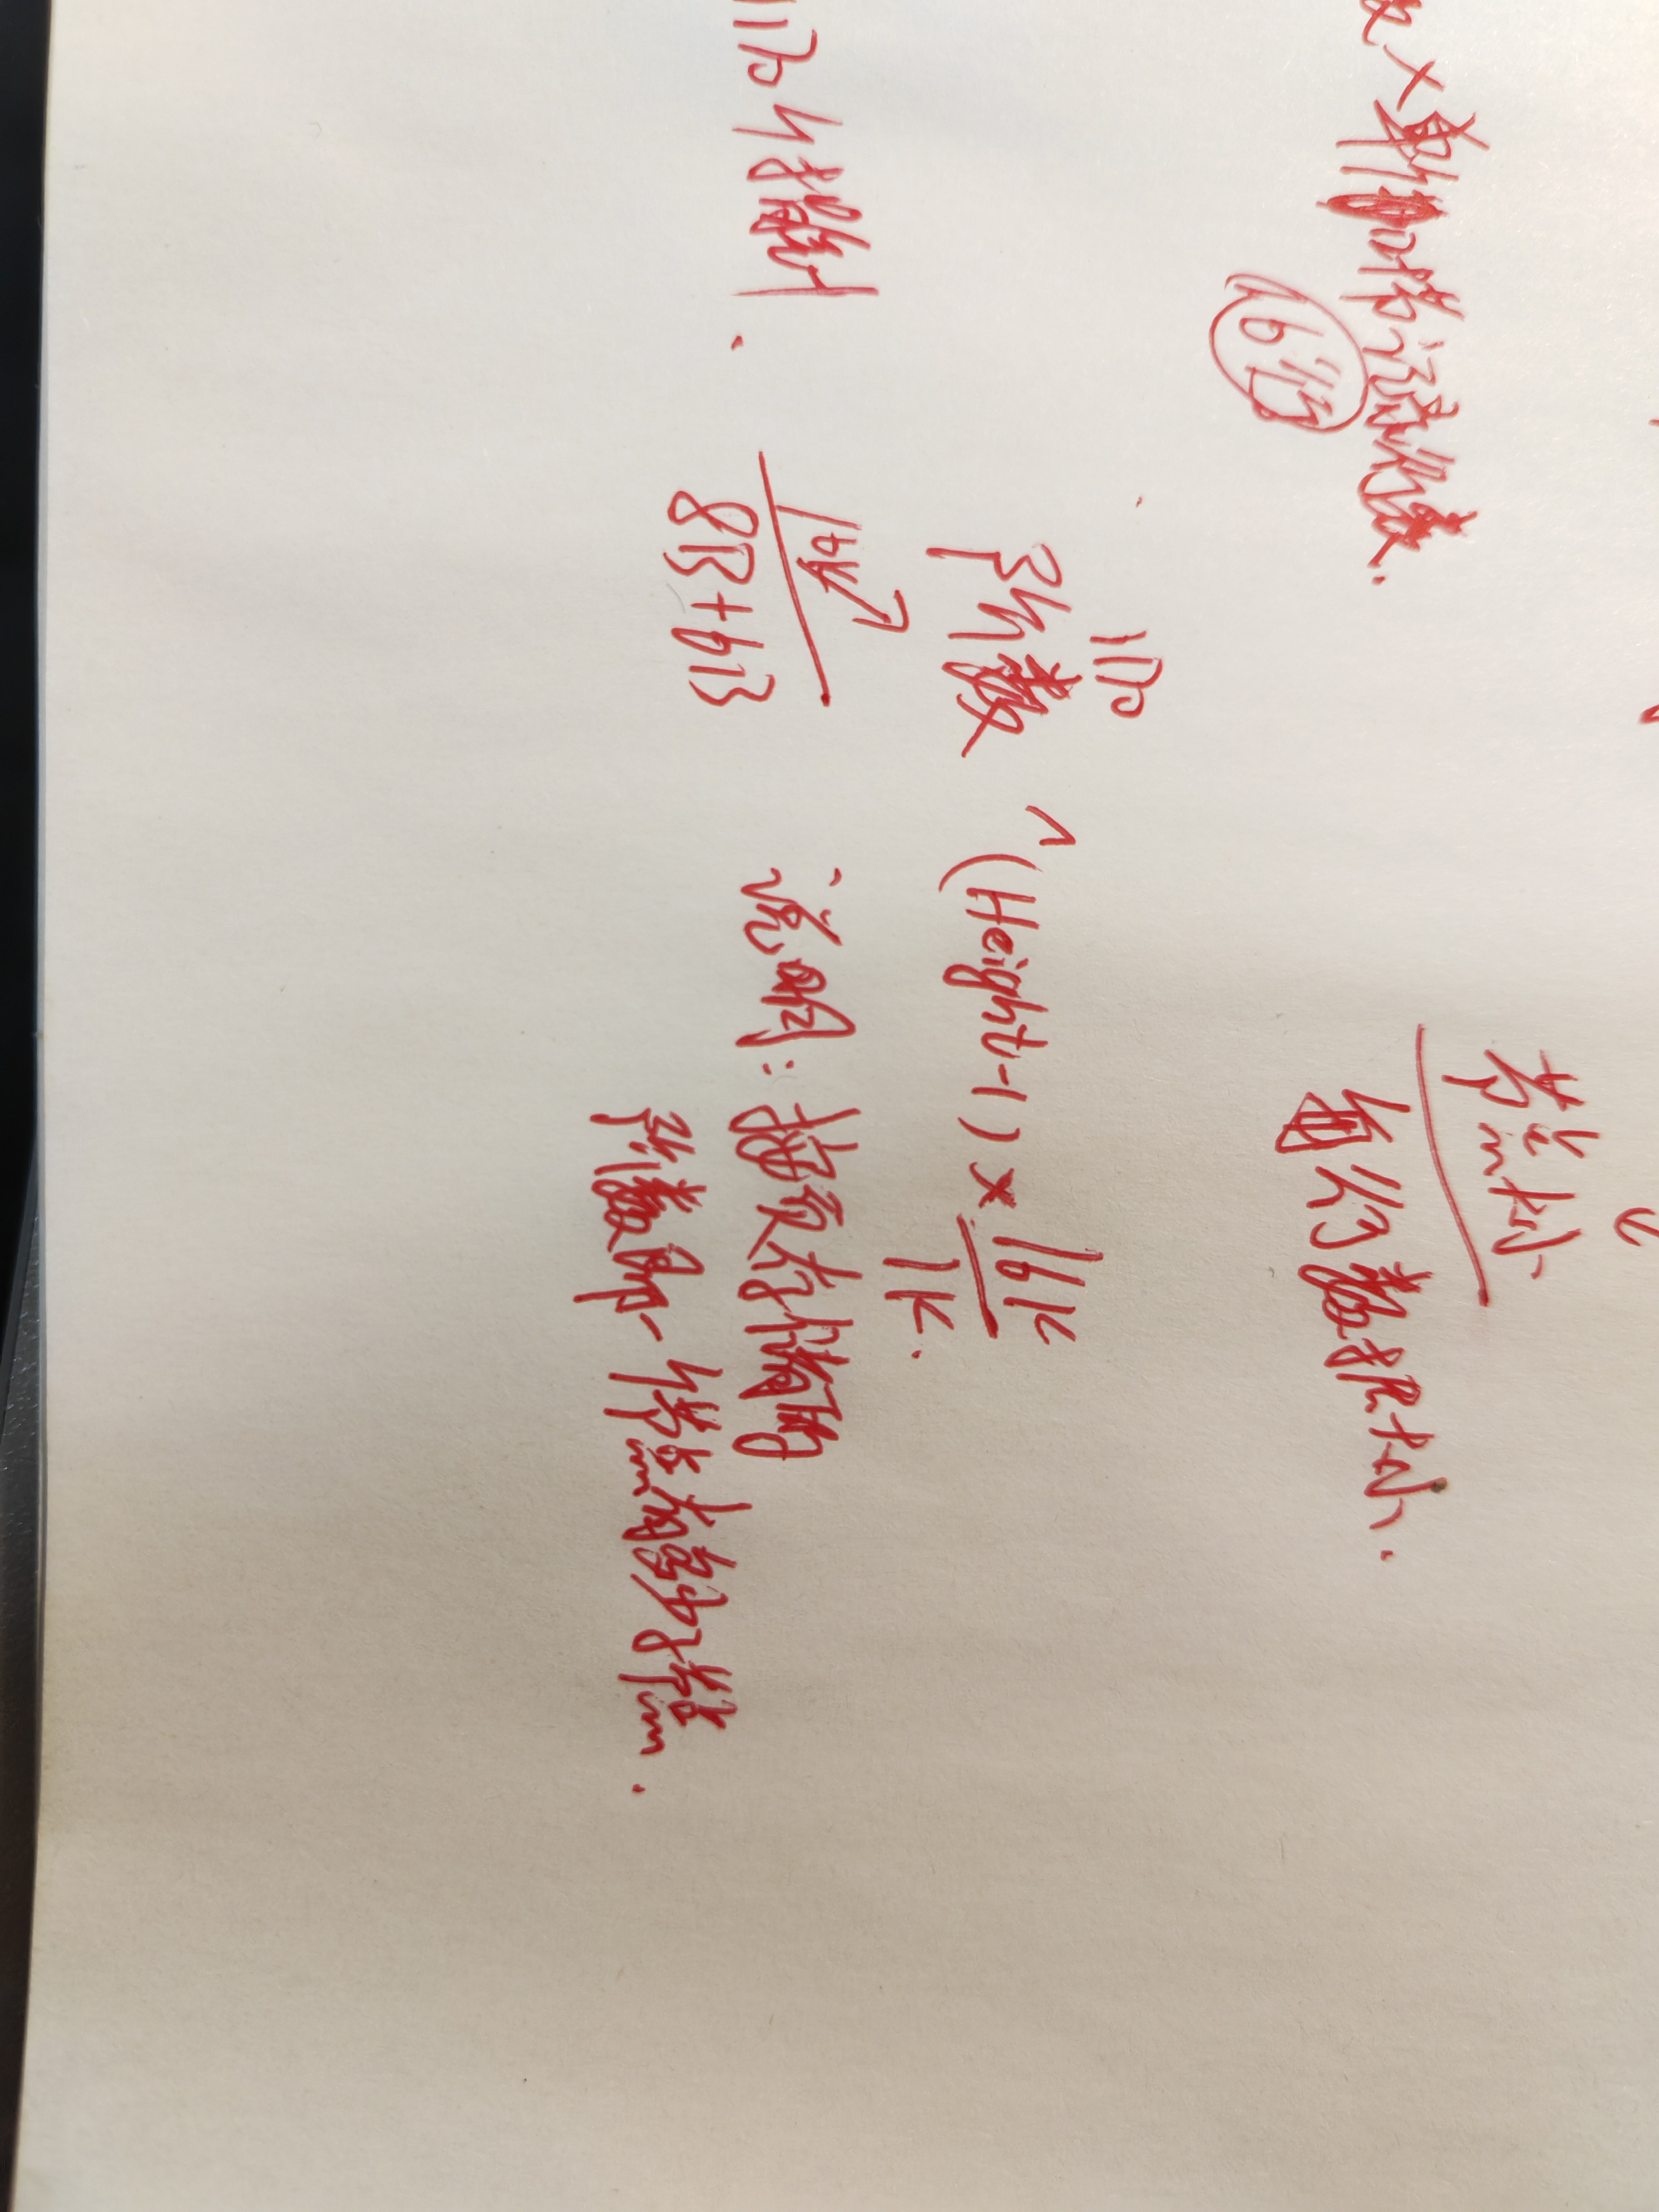 节点大小
每行数据大小.
数×单个叶节记录行数.
16行
1170
阶数 ^(Height-1)×16K
1K.
1170个指针.
16K
8B+6B
说明:按页存储的
阶数即一个节点有多少子节点.